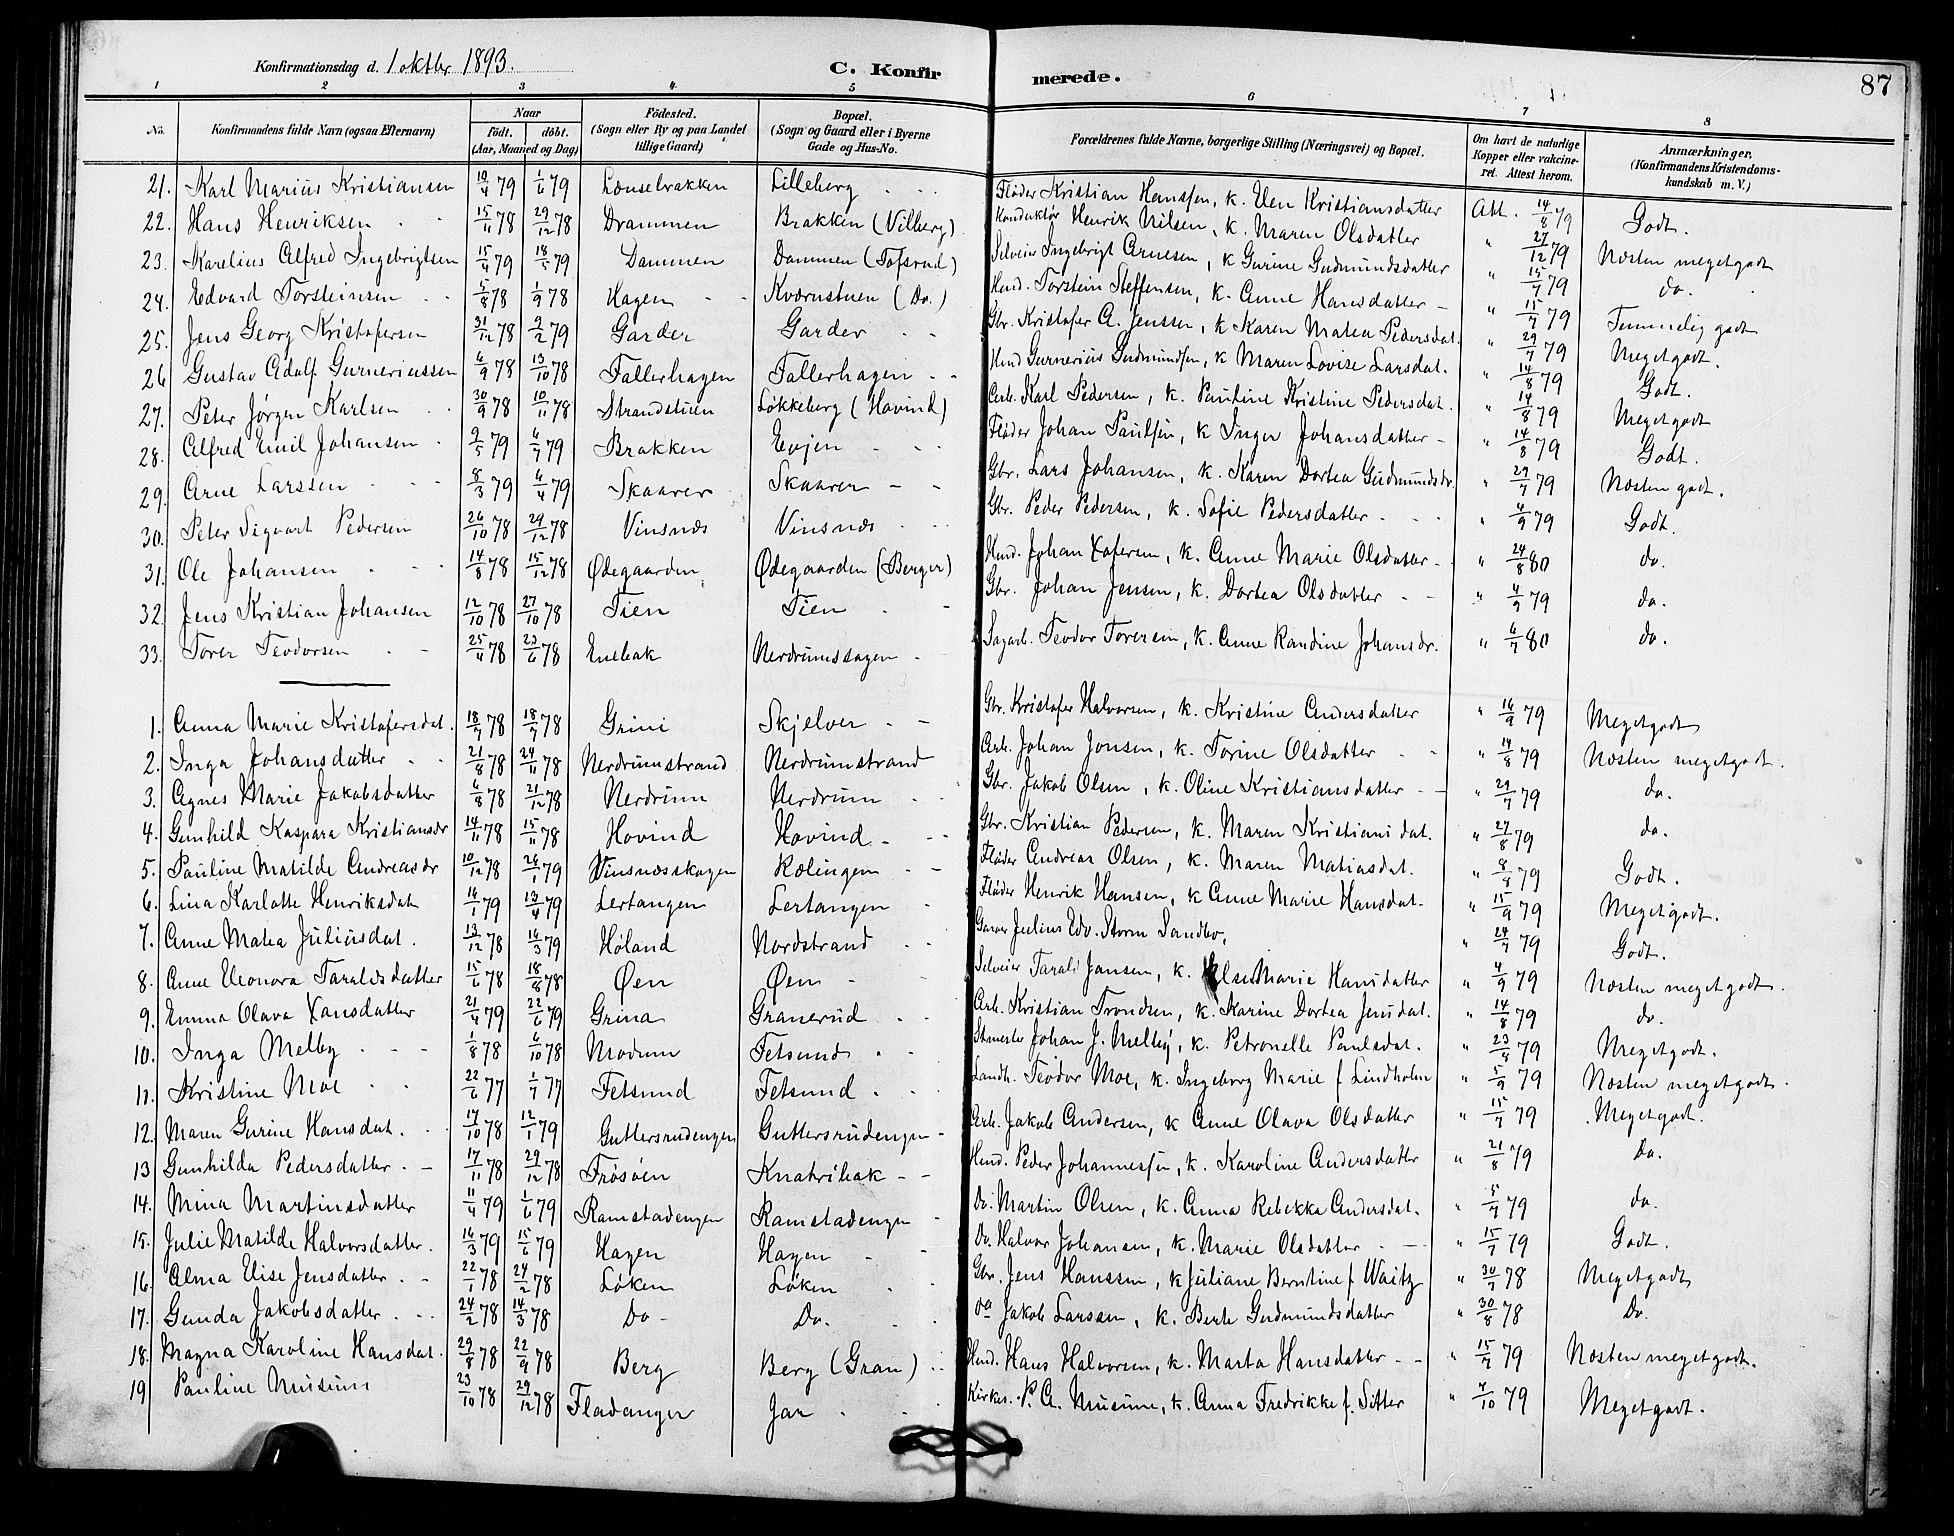 Konfirmationsdag d. 1 oktbr 1893.
C. Konfirmerede.
87
1 2 3 4 5 6 7 8
No. Konfirmandens fulde Navn (ogsaa Efternavn) Naar födt. döbt. (Aar, Maaned og Dag) Födested. (Sogn eller By og paa Landet tillige Gaard) Bopæl. (Sogn og Gaard eller i Byerne Gade og Hus-No. Forældrenes fulde Navne, borgerlige Stilling (Næringsvei) og Bopæl. Om havt de naturlige Kopper eller vakcineret. Attest herom. Anmærkninger. (Konfirmandens Kristendomskundskab m. V.)
21. Karl Marius Kristiansen 10/4 79 1/6 79 Lenselvakken Lilleberg Fløder Kristian Hanssen, k. Kristiansdatter Att. 14/8 79 Godt.
22. Hans Henriksen 15/11 78 29/12 78 Drammen Brakken (Vilberg) Konduktør Henrik Nilsen, k. Maren Olsdatter " 27/12 79 Næsten meget godt
23. Karelius Alfred Ingebrigtsen 15/4 79 18/5 79 Dammen Dammen (Tofsrud) Selveier Ingebrigt Arnesen, k Gurine Gudmundsdatter " 15/7 79 do.
24. Edvard Torsteinsen 5/8 78 1/9 78 Hagen Kværnstuen (Do.) Husd. Torstein Steffensen, k. Anne Hansdatter " 15/7 79 Temmelig godt
25. Jens Georg Kristofersen 31/12 78 2/2 79 Garder Garder Gbr. Kristofer A. Jenssen, k Karen Matea Pedersdat. " 29/7 79 Meget godt.
26 Gustav Adolf Gurneriussen 6/9 78 13/10 78 Fallerhagen Fallerhagen Husd Gurnerius Gudmundsen, k Maren Lovise Larsdat. " 14/8 79 Godt.
27. Peter Jørgen Karlsen 30/9 78 10/11 78 Strandstuen Løkkeberg (Hovind) Arb. Karl Pedersen, k. Pauline Kristine Pedersdat. " 14/8 79 Meget godt
28. Alfred Emil Johansen 2/5 79 6/7 79 Brakken Evjen Fløder Johan Paulsen, k Inger Johansdatter " 14/8 79 Godt.
29. Arne Larssen 8/3 79 6/4 79 Skaarer Skaarer Gbr. Lars Johansen, k. Karen Dortea Gudmundsdr. " 29/7 79 Næsten godt.
30. Peter Sigvart Pedersen 26/10 78 29/12 78 Vinsnæs Vinsnæs Gbr. Peder Pedersen, k. Sofie Pedersdatter " 4/9 79 Godt.
31. Ole Johansen 14/8 78 15/12 78 Ødegaarden Ødegaarden (Berger) Husd. Johan Xofersen, k. Anne Marie Olsdatter " 24/8 80 do.
32. Jens Kristian Johansen 12/10 78 27/10 78 Tien Tien Gbr. Johan Jensen, k. Dortea Olsdatter " 4/9 79 do.
33. Torer Teodorsen 25/4 78 23/6 78 Enebak Nerdrumssagen Sagarb. Teodor Torersen, k. Anne Randine Johansdr. " 6/7 80 do.
1. Anna Marie Kristofersdat. 18/7 78 18/7 78 Grini Skjelver Gbr. Kristofer Halvorsen, k. Kristine Andersdatter " 16/9 79 Meget godt
2. Inga Johansdatter 21/8 78 24/11 78 Nerdrumstrand Nerdrumstrand Arb. Johan Jonsen, k. Torine Olsdatter " 14/8 79 Næsten meget godt.
3. Agnes Marie Jakobsdatter 6/8 78 21/12 78 Nerdrum Nerdrum Gbr. Jakob Olsen, k. Oline Kristiansdatter " 29/7 79 do.
4. Gunhild Kaspara Kristiansdr 14/11 78 15/11 78 Hovind Hovind Gbr. Kristian Pedersen, k. Maren Kristiansdat. " 27/8 79 do.
5. Pauline Matilde Andreasdr 10/12 78 26/1 79 Vinsnæsskogen Rælingen Fløder Andreas Olsen, k. Maren Matiasdat. " 8/8 79 Godt.
6. Lina Karlotte Henriksdat 14/1 79 13/4 79 Lertangen Lertangen Fløder Henrik Hansen, k Anne Marie Hansdat. " 15/9 79 Meget godt.
7. Anne Matea Juliusdat. 13/12 78 16/3 79 Høland Nordstrand Garver Julius Edv. Storm Sandbo, " 24/7 79 Godt.
8. Anne Eleonora Taraldsdatter 15/6 78 18/8 78 Øen Øen Selveier Tarald Jansen, k. Else Marie Hansdatter " 4/9 79 Næsten meget godt.
9. Emma Olava Xansdatter 21/4 79 22/6 79 Grina Granerud Arb. Kristian Trondsen, k. Karine Dortea Jensdat. " 14/8 79 do.
10. Inga Melby 1/8 78 6/10 78 Modum Fetsund Johan J. Melby, k. Petronelle Paulsdat. " 23/8 79 Meget godt.
11. Kristine Moe 22/6 77 1/7 77 Fetsund Fetsund Landh. Teodor Moe, k. Ingeborg Marie f. Lindholm " 5/9 79 Næsten meget godt.
12. Maren Gurine Hansdat. 17/10 78 12/1 79 Guttersrudengen Guttersrudengen Arb. Jakob Andersen, k Anne Olava Olsdatter " 15/7 79 Meget godt.
13 Gunhilda Pedersdatter 17/11 78 29/12 78 Frøsøen Knatribak Husd. Peder Johannessen, k. Karoline Andersdatter " 21/8 79 Do.
14. Mina Martinsdatter 11/4 79 1/6 79 Ramstadengen Ramstadengen Do. Martin Olsen, k. Anna Rebekka Andersdat. " 5/7 79 do.
15. Julie Matilde Halvorsdatter. 16/3 79 15/6 79 Hagen Hagen Do. Halvor Johansen, k. Marie Olsdatter " 15/7 79 Godt.
16. Alma Elise Jensdatter 22/1 78 24/2 78 Løken Løken Gbr. Jens Hanssen, k Juliane Berntine f. Waitz " 30/7 78 Meget godt
17. Gunda Jakobsdatter 24/2 78 14/3 78 Do Do. do Jakob Larssen, k. Berte Gudmundsdatter " 30/8 78 Do.
18. Magna Karoline Hansdat. 29/8 78 22/9 78 Berg Berg (Gran) Husd. Hans Halvorsen, k. Marta Hansdatter " 15/7 79 Næsten meget godt.
19 Pauline Musum 23/10 78 29/12 78 Fladanger Jar Kirkes. P. A. Musum, k. Anna Fredrikke f. Sitter " 7/10 79 Meget godt.